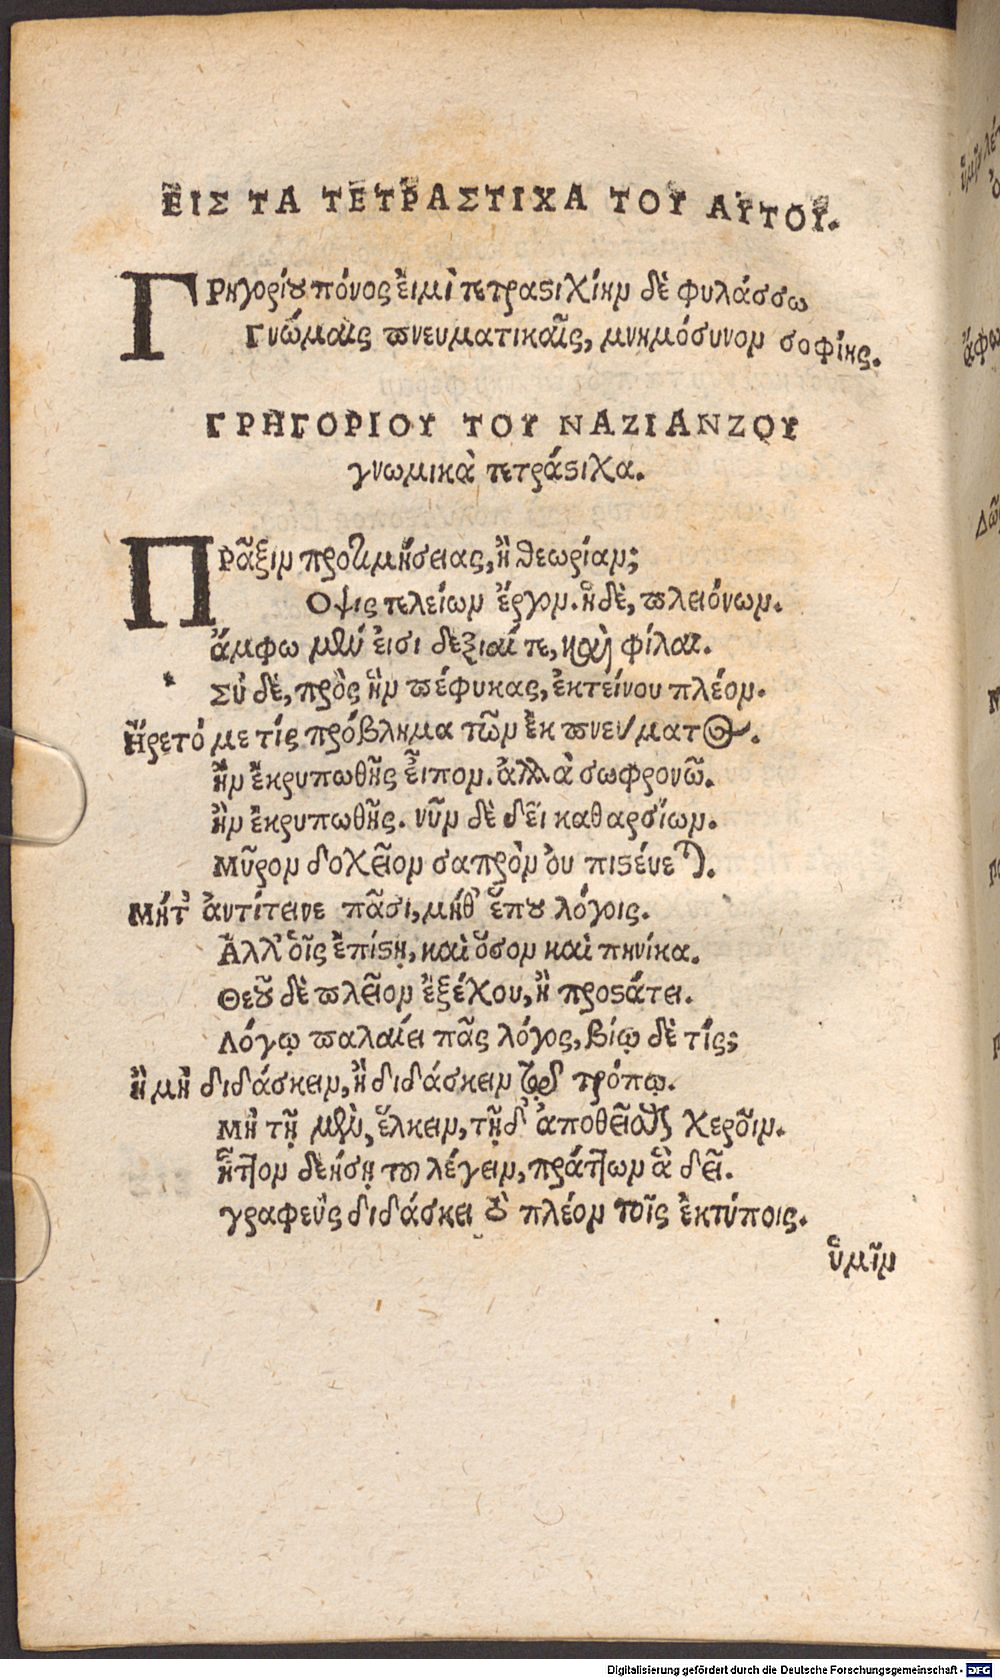 ΕΙΣ ΤΑ ΤΕΤΡΑΣΤΙΧΑ ΤΟΥ ΑΥΤΟΥ.
ΓΡηγορίου πόνος εἰμὶ τετραστιχίην δὲ φυλάσσω
Γνώμαις πνευματικαῖς, μνημόσυνον σοφίης.
ΓΡΗΓΟΡΙΟΥ ΤΟΥ ΝΑΖΙΑΝΖΟΥ
γνωμικὰ τετράστιχα.
ΠΡᾶξιν προτιμήσειας, ἢ θεωρίαν;
Οψις τελείων ἔργον. ἡ δὲ, πλειόνων.
ἄμφω μέν εἰσι δεξιαί τε, καὶ φίλαι.
Σὺ δὲ, πρὸς ἣν πέφυκας, ἐκτείνου πλέον.
Ἤρετό με τίς πρόβλημα τῶν ἐκ πνεύματος.
ἢν ἐκρυπωθῇς εἶπον. ἀλλὰ σωφρονῶ.
ἢν ἐκρυπωθῇς. νῦν δὲ δεῖ καθαρσίων.
Μῦρον δοχεῖον σαπρὸν οὐ πιστεύεται.
Μήτ' ἀντίτεινε πᾶσι, μήθ' ἕπου λόγοις.
Ἀλλ' οἷς ἐπίστῃ, καὶ ὅσον καὶ πηνίκα.
Θεοῦ δὲ πλεῖον ἐξέχου, ἢ προστάτει.
Λόγῳ παλαίει πᾶς λόγος, βίῳ δὲ τίς;
ἢ μὴ διδάσκειν, ἢ διδάσκειν τῷ τρόπῳ.
Μὴ τῇ μὲν, ἕλκειν, τῇ δ' ἀποθεῖσθαι χεροῖν.
ἧττον δεήσῃ τοῦ λέγειν, πράττων ἃ δεῖ.
γραφεὺς διδάσκει οὐ πλέον τοῖς ἐκτύποις.
ὑμῖν
Digitalisierung gefördert durch die Deutsche Forschungsgemeinschaft - DFG